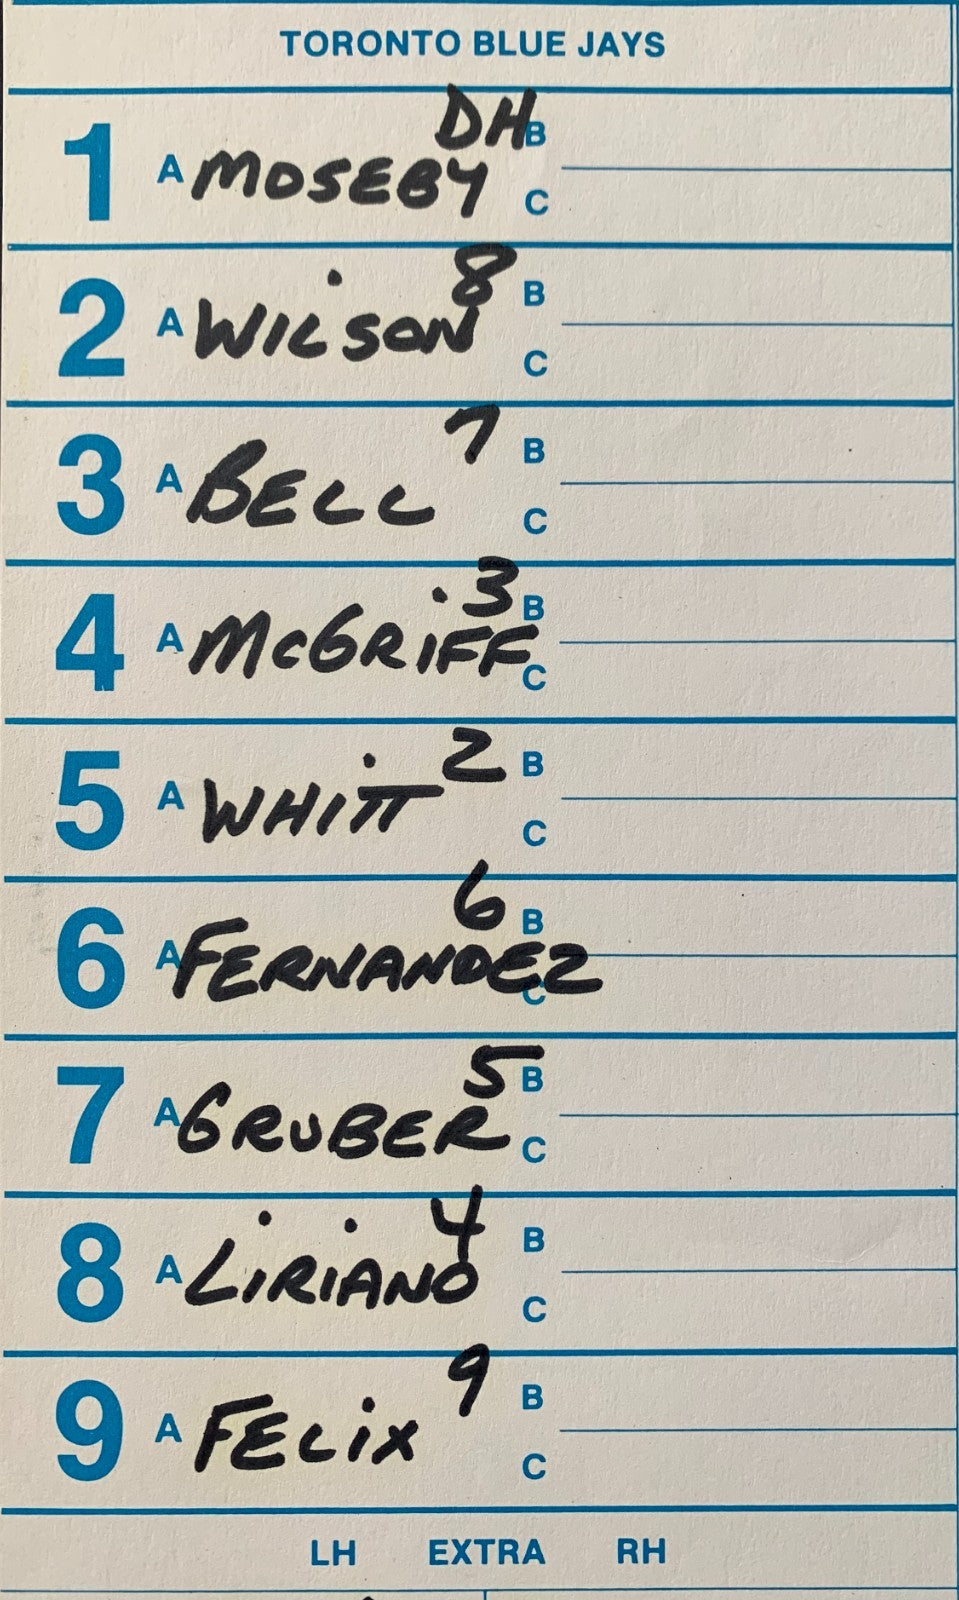 TORONTO BLUE JAYS
DH
1 A MOSEBY B
C
8
2 A WILSON B
C
7
3 A BELL B
C
3
4 A McGRiFF B
C
2
5 A WHiTT B
C
6
6 A FERNANDEZ B
C
5
7 A GRUBER B
C
4
8 A LiRiANO B
C
9
9 A FELiX B
C
LH EXTRA RH